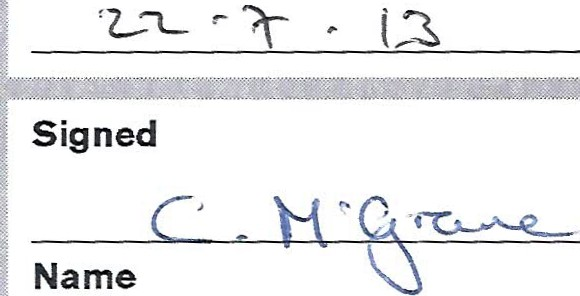 22.7.13
Signed
C. McGrane
Name